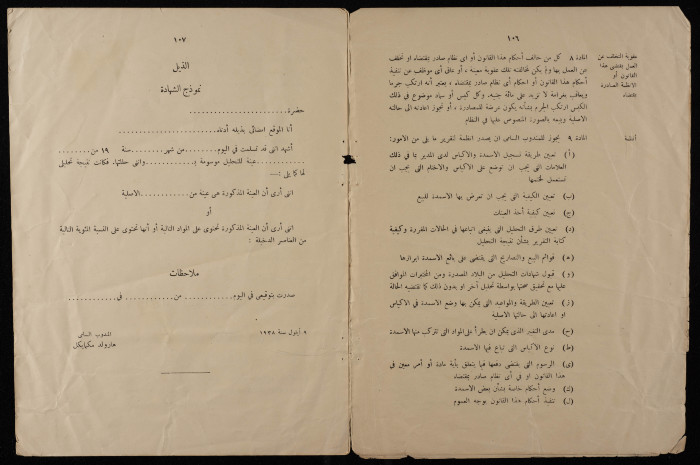 ١٠٦
عقوبة التخلف عن
العمل بمقتضى هذا
القانون أو
الانظمة الصادرة
بمقتضاه
المادة ٨ كل من خالف أحكام هذا القانون أو اى نظام صادر بمقتضاه ، أو تخلف
عن العمل بها ولم يكن لمخالفته تلك عقوبة معينة ، أو عاق أى موظف عن تنفيذ
أحكام هذا القانون او احكام أى نظام صادر بمقتضاه ، يعتبر أنه ارتكب جرما
ويعاقب بغرامة لا تزيد على مائة جنيه. وكل كيس أو سماد موضوع فى ذلك
الكيس ارتكب الجرم بشأنه يكون عرضة للمصادرة ، أو تجوز اعادته الى حالته
الاصلية وبيعه بالصورة المنصوص عليها في النظام
أنظمة
المادة ٩ يجوز للمندوب السامى ان يصدر انظمة لتقرير ما يلى من الأمور:
(أ) تعيين طريقة تسجيل الاسمدة والاكياس لدى المدير بما في ذلك
العلامات التى يجب ان توضع على الاكياس والاختام التى يجب ان
تستعمل لختمها
(ب) تعيين الكيفية التى يجب ان تعرض بها الاسمدة للبيع
(ج) تعيين كيفية أخذ العينات
(د) تعيين طرق التحليل التى ينبغى اتباعها في الحالات المقررة وكيفية
كتابة التقرير بشأن نتيجة التحليل
(ه) قوائم البيع والتصاريح التى يقتضى على بائع الاسمدة ابرازها
(و) قبول شهادات التحليل من البلاد المصدرة ومن المختبرات الموافق
عليها مع تحقيق صحتها بواسطة تحليل آخر او بدون ذلك كما تقتضيه الحالة
(ز) تعيين الطريقة والمواعد التى يمكن بها وضع الاسمدة في الاكياس
او اعادتها الى حالتها الاصلية
(ح) مدى التغير الذى يمكن ان يطرأ على المواد التى تتركب منها الاسمدة
(ط) نوع الاكياس التى تباع فيها الاسمدة
(ى) الرسوم التى يقتضى دفعها فيما يتعلق بأية مادة أو أمر معين في
هذا القانون او في أى نظام صادر بمقتضاه
(ك) وضع أحكام خاصة بشأن بعض الاسمدة
(ل) تنفيذ أحكام هذا القانون بوجه العموم
١٠٧
الذيل
نموذج الشهادة
حضرة....................
أنا الموقع امضائى بذيله أدناه....................
أشهد اننى قد تسلمت في اليوم..........من شهر..........سنة ١٩ من..........
..........عينة للتحليل موسومة بـ..........واننى حللتها، فكانت نتيجة تحليلى
لها كما يلى :—
اننى أرى أن العينة المذكورة هى عينة من..........الاصلية
أو
اننى أرى أن العينة المذكورة تحتوى على المواد التالية أو أنها تحتوى على النسبة المئوية التالية
من العناصر الدخيلة :
ملاحظات
صدرت بتوقيعى في اليوم..........من..........فى..........
٩ أيلول سنة ١٩٣٨
المندوب السامى
هارولد مكمايكل